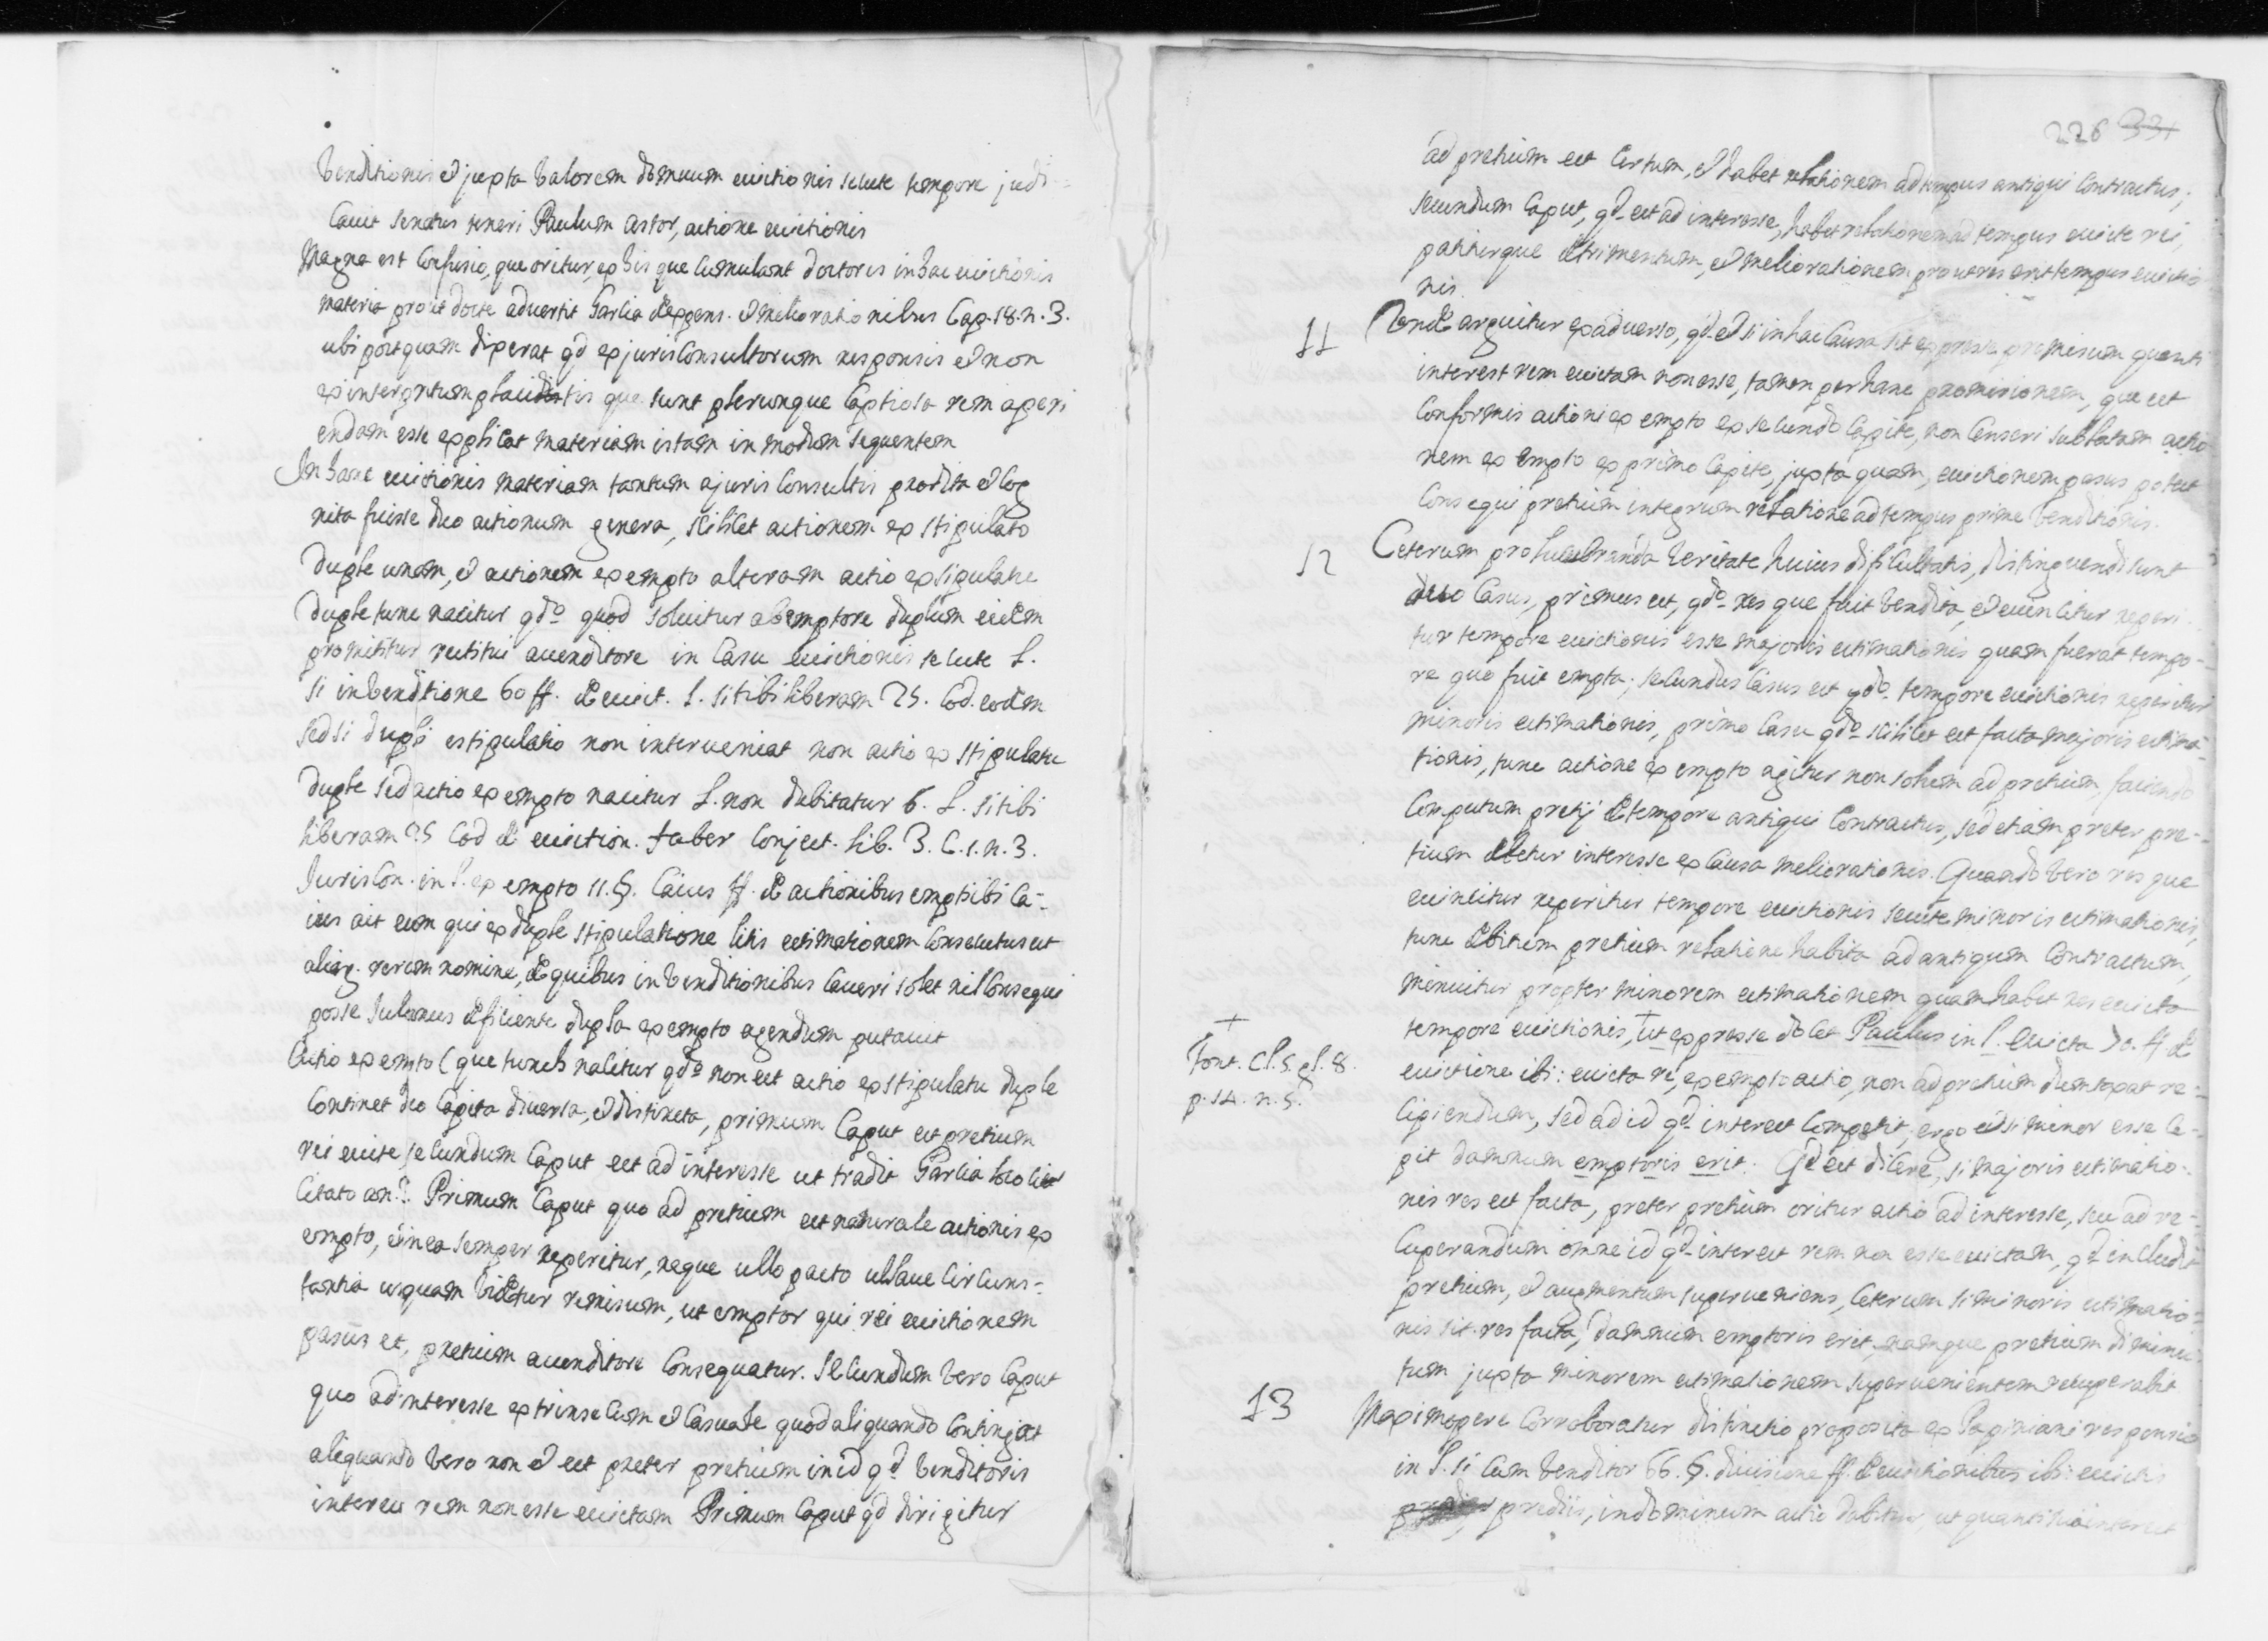 venditionis et juxta valorem domuum evictionis secute tempore judi-
cavit senatus teneri Paulum astor, actione evictionis
Magna est confusio, que oritur, ex his que cumulant doctores in hac evictionis
materia prout docte advertit Garlia de expens. et meliorationibus Cap. 18. n. 3.
ubi postquam dixerat qd ex jurisconsultorum responsis et non
ex interpretum placitis que sunt plerunque captiosa rem aperi
endam esse explicat materiam istam in modum sequentem
In hanc evictionis materiam tantum a juris consultis prodita et cog
nita fuisse duo actionum genera, scilicet actionem ex stipulato
duple unam, et actionem ex empto alteram actio ex stipulatu
duple tunc nacitur qdo quod solvitur ab emptore duplum eidem
promititur restitui a venditore in casu evictionis secute l.
si in venditione 60 ff. de evict. l. si tibi liberam 25. Cod. eodem
sed si dupli estipulatio non interveniat non actio ex stipulatu
duple sed actio ex empto nacitur l. non dubitatur 6. l. si tibi
liberam 25 Cod de eviction. faber conject. lib. 3. C. 1. n. 3.
Juriscon. in l. ex empto 11. §. Caius ff. de actionibus empti ibi Ca-
ius ait eum qui ex duple stipulatione litis estimationem consecutus est
aliar. rerum nomine, de quibus in venditionibus caveri solet nil consequi
posse Julianus deficiente dupla ex empto agendum putavit
Actio ex empto (que tunch nacitur qdo non est actio ex stipulatu duple
continet duo capita diversa, et distincta, primum Caput est pretium
rei evicte secundum Caput est ad interesse ut tradit Garlia loco
citato Primum Caput quo ad pretium est naturale actionis ex
empto, in ea semper reperitur, neque ullo pacto ullave circuns-
tantia usquam videtur remisum, ut emptor qui rei evictionem
pasus et, pretium a venditore consequatur. Secundum vero Caput
quo ad interesse extrinsecum et casuale quod aliquando contingat
aliquando vero non et est preter pretium in id qd venditoris
interest rem non esse evictam Primum Caput qd dirigitur
226 331
ad pretium est certum, et habet relationem ad tempus antiqui contractus;
secundum Caput, qd est ad interesse, habet relationem ad tempus evicte rei,
patiturque detrimentum, et meliorationem prout res erit tempus evictio
nis.
11 Unde arguitur ex adverso, qd et si in hac causa sit expresse promisum quanti
interest rem evictam non esse, tamen per hanc promisionem, que est
conformis actioni ex empto ex secundo Capite, non censeri sublatam actio
nem ex empto ex primo Capite, juxta quam, evictionem pasus potest
consequi pretium integrum relatione ad tempus prime venditionis.
12 Ceterum pro lucubranda veritate huius dificultatis, distinguendi sunt
duo casus, primus est, qdo res que fuit vendita, et evincitur reperi-
tur tempore evictionis esse majoris estimationis quam fuerat tempo-
re quo fuit empta; secundus casus est qdo tempore evictionis reperitur
minoris estimationis, primo casu qdo scilicet est facta majoris estima-
tionis, tunc actione ex empto agitur non solum ad pretium, faciendo
computum pretij de tempore antiqui contractus, sed etiam preter pre-
tium debetur interesse ex causa meliorationis. Quando vero res que
evincitur reperitur tempore evictionis secute minoris estimationis,
tunc debitum pretium relatione habita ad antiquum contractum,
minuitur propter minorem estimationem quam habet res evicta
tempore evictionis, + ut expresse docet Paulus in l. evicta 70. ff de
+
Font. Cl. 5. gl. 8.
p. 14. n. 5.
evictione ibi: evicta re, ex empto actio, non ad pretium dumtaxat re-
cipiendum, sed ad id qd interest competit, ergo et si minor esse ce-
pit damnum emptoris erit. Qd est dicere, si majoris estimatio-
nis res est facta, preter pretium oritur actio ad interesse, seu ad re-
cuperandum omne id qd interest rem non esse evictam, qd includit
pretium, et augmentum superveniens, ceterum si minoris estimatio-
nis sit res facta, damnum emptoris erit, namque pretium diminu-
tum juxta minorem estimationem supervenientem recuperabit
13 Maximopere corroboratur distinctio proposita ex Papiniani responso
in l. si cum venditor 66. §. divisione ff. de evictionibus ibi: evictis
prediis, in dominum actio dabitur, ut quanti sua interest